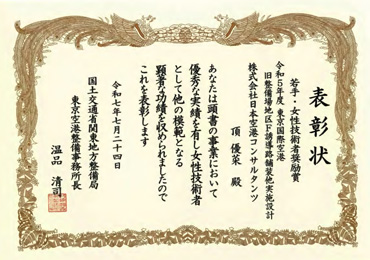 表彰状
若手・女性技術者奨励賞
令和5年度 東京国際空港
旧整備場地区F誘導路舗装他実施設計
株式会社日本空港コンサルタンツ
頂 優菜 殿
あなたは頭書の事業において
優秀な実績を有し女性技術者
として他の模範となる
顕著な功績を収められましたので
これを表彰します
令和七年七月二十四日
国土交通省関東地方整備局
東京空港整備事務所長
温品 清司